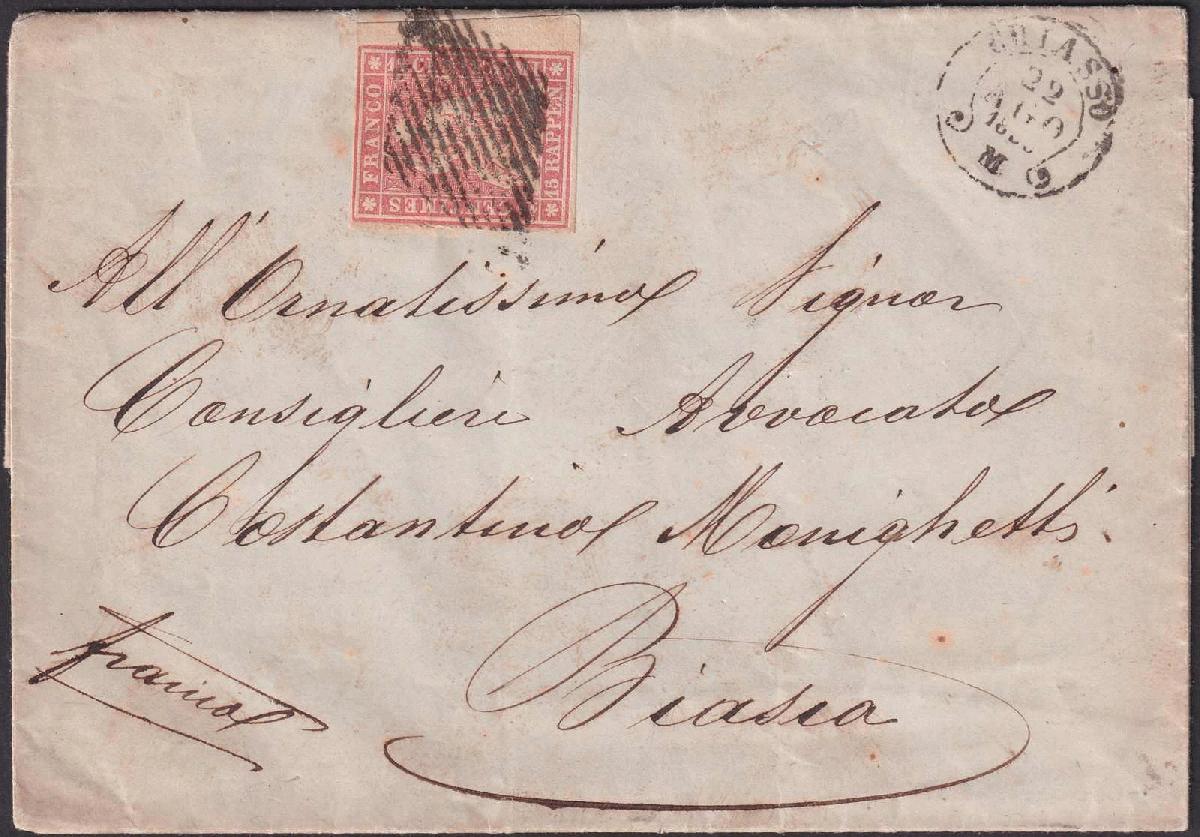 FRANCO
15 RAPPEN
CHIASSO
22
AGO
M 9
All' Ornatissimo Signor
Consiglieri Avvocato
Costantino Monighetti
Biasca
franco